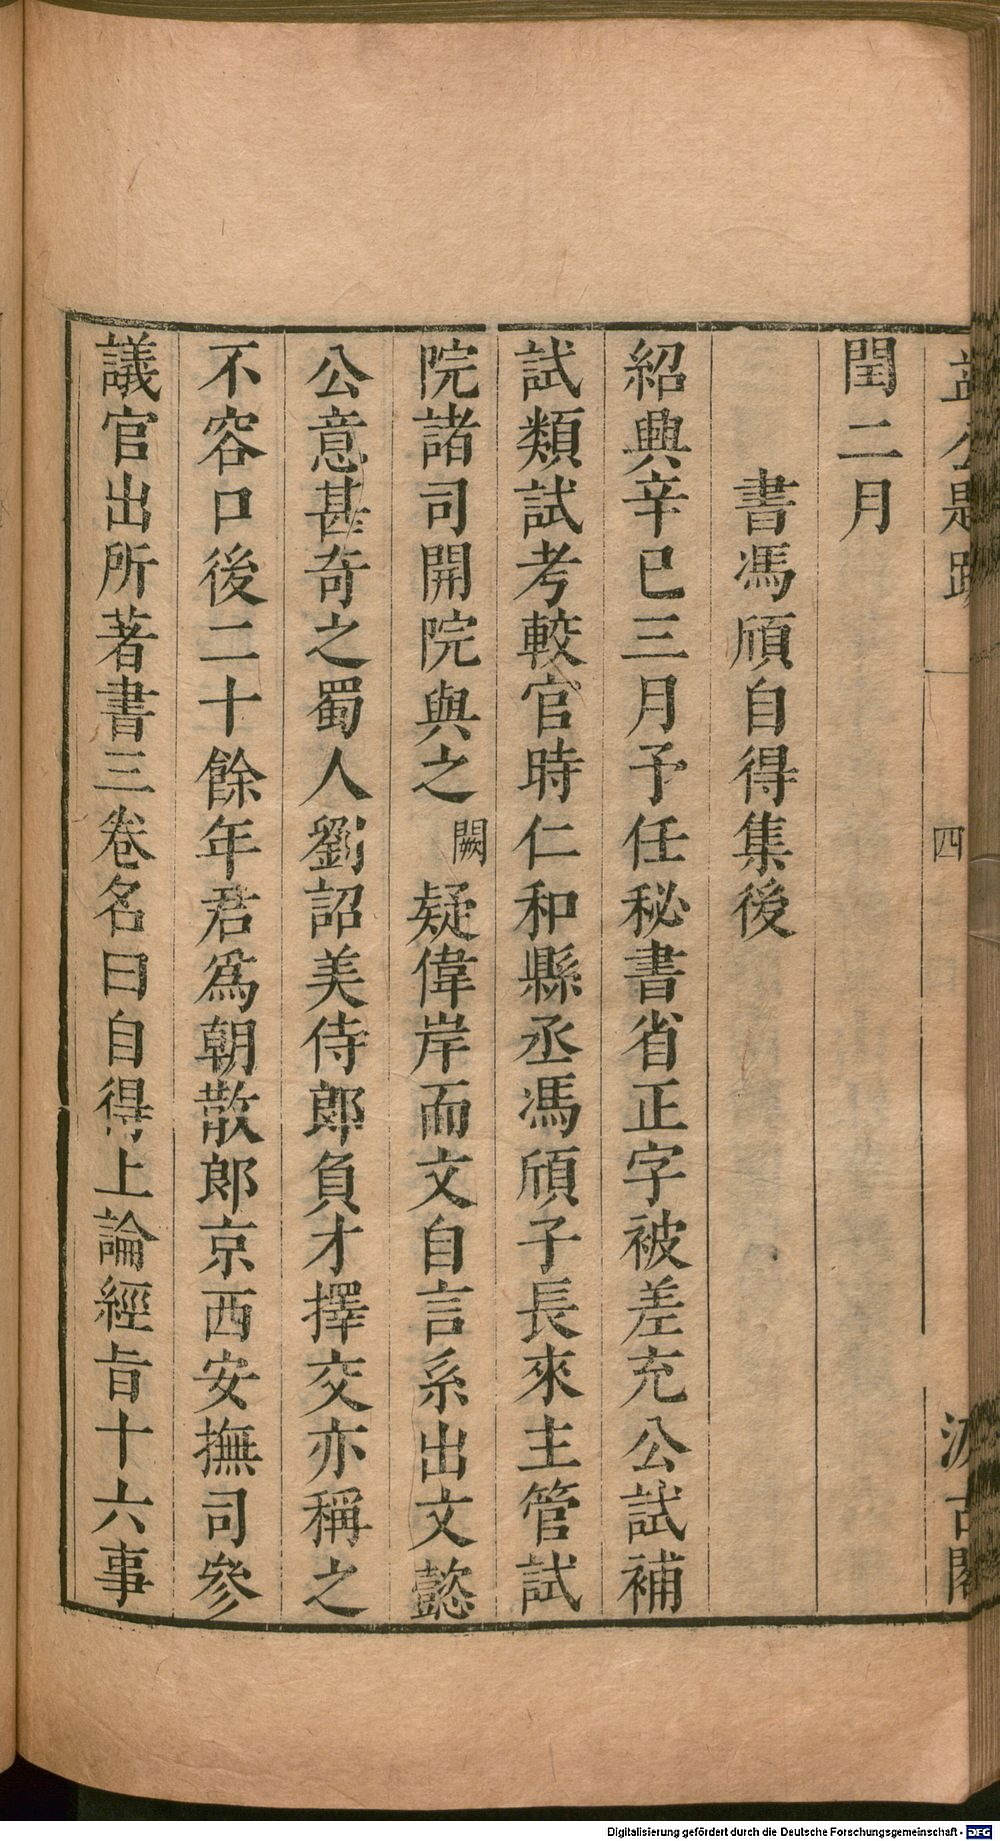 益公題跋
四
汲古閣
閏二月
書馮頎自得集後
紹興辛巳三月予任秘書省正字被差充公試補
試類試考較官時仁和縣丞馮頎子長來主管試
院諸司開院與之闕疑偉岸而文自言系出文懿
公意甚奇之蜀人劉韶美侍郎負才擇交亦稱之
不容口後二十餘年君爲朝散郎京西安撫司參
議官出所著書三卷名曰自得上論經旨十六事
Digitalisierung gefördert durch die Deutsche Forschungsgemeinschaft - DFG